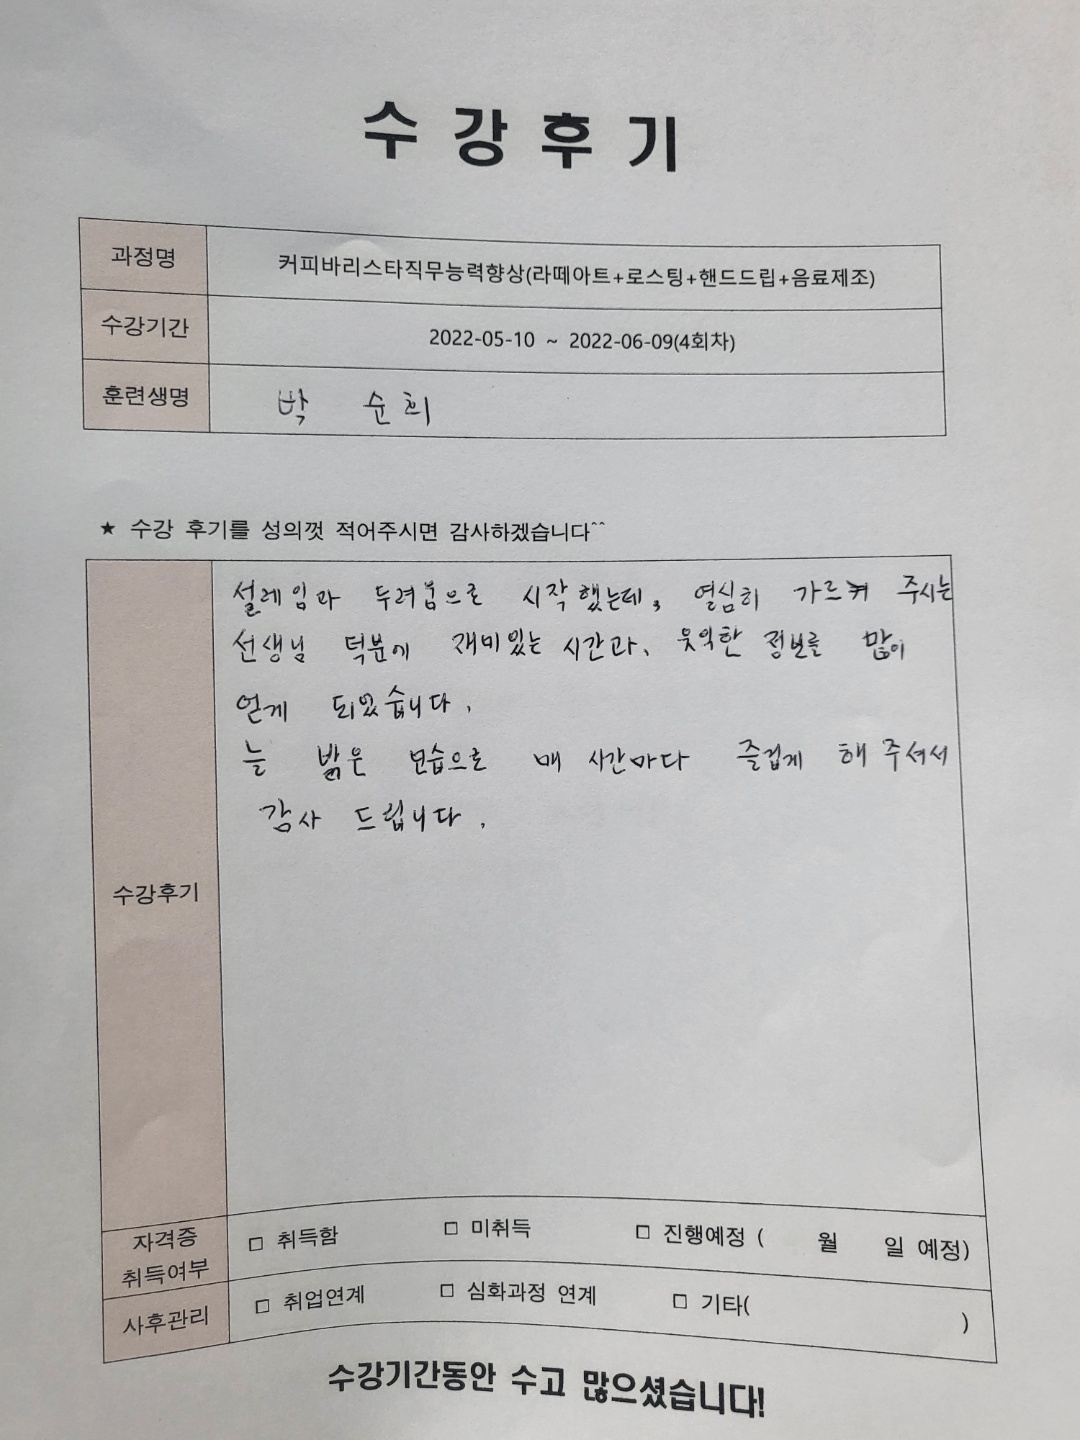 수강후기
과정명 커피바리스타직무능력향상(라떼아트+로스팅+핸드드립+음료제조)
수강기간 2022-05-10 ~ 2022-06-09(4회차)
훈련생명 박 순희
★ 수강 후기를 성의껏 적어주시면 감사하겠습니다^^
설레임과 두려움으로 시작했는데, 열심히 가르켜 주시는
선생님 덕분에 재미있는 시간과, 유익한 정보를 많이
얻게 되었습니다.
늘 밝은 모습으로 매 시간마다 즐겁게 해 주셔서
감사 드립니다.
수강후기
자격증 취득여부 □ 취득함 □ 미취득 □ 진행예정 ( 월 일 예정)
사후관리 □ 취업연계 □ 심화과정 연계 □ 기타( )
수강기간동안 수고 많으셨습니다!